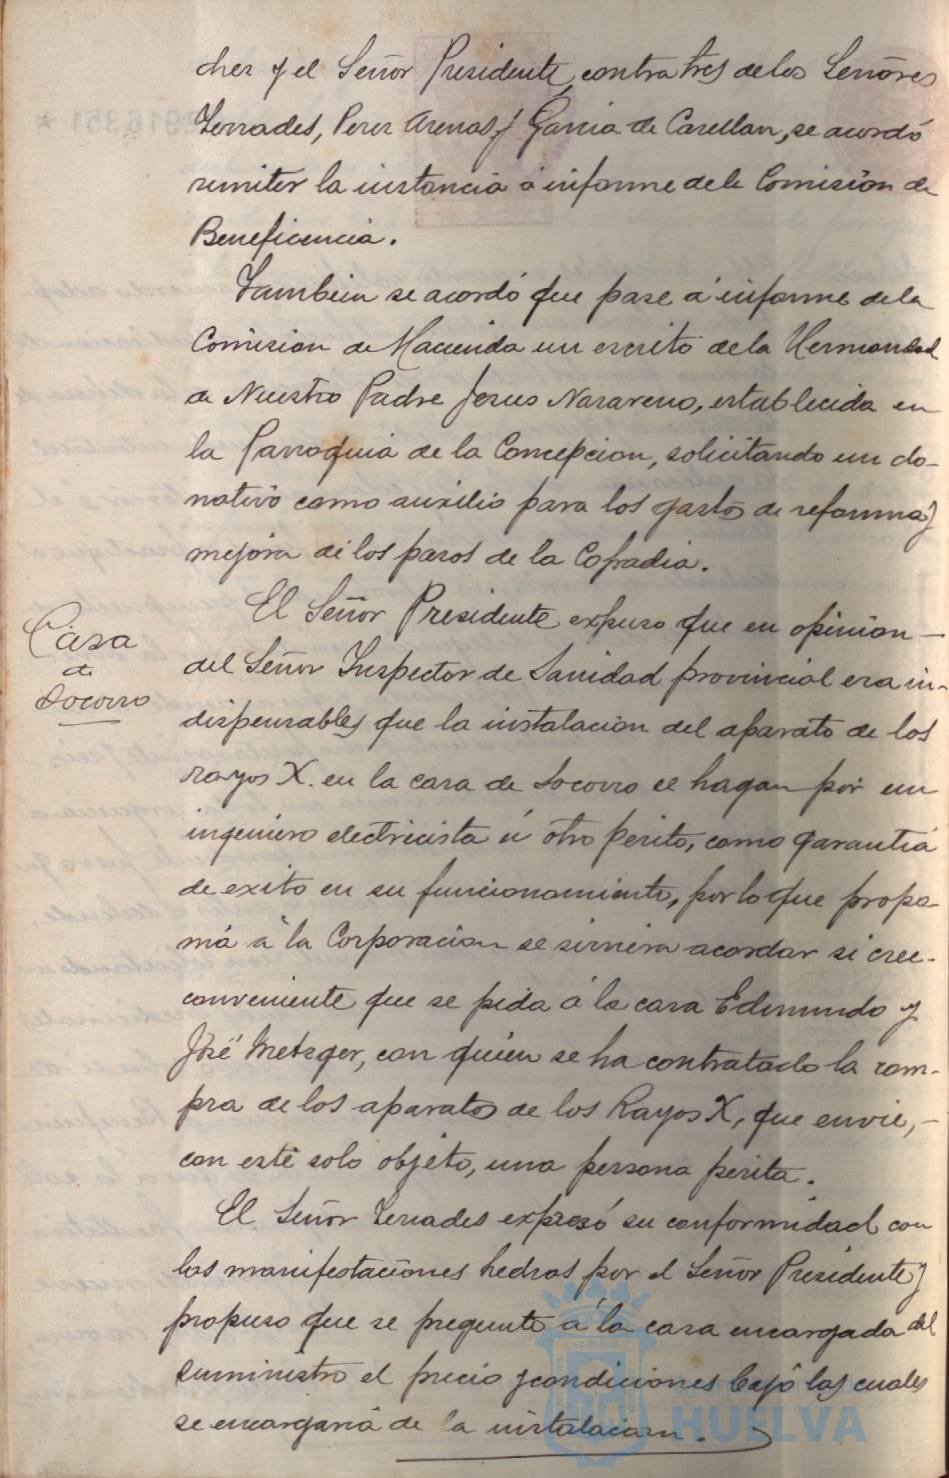 ches y el Señor Presidente, contra tres de los Señores
Terrades, Perez Arenas y Garcia de Casellan, se acordó
remitir la instancia á informe de la Comision de
Beneficencia.
Tambien se acordó que pase á informe de la
Comision de Hacienda un escrito de la Hermandad
de Nuestro Padre Jesus Nazareno, establecida en
la Parroquia de la Concepcion, solicitando un do-
nativo como auxilio para los gastos de reforma y
mejora de los pasos de la Cofradia.
Casa
de
Socorro
El Señor Presidente expuso que en opinion
del Señor Inspector de Sanidad provincial era in-
dispensables que la instalacion del aparato de los
rayos X. en la casa de Socorro se hagan por un
ingeniero electricista ú otro perito, como garantia
de exito en su funcionamiento, por lo que propo-
nia á la Corporacion se sirviera acordar si cree
conveniente que se pida á la casa Edmundo y
José Metzger, con quien se ha contratado la com-
pra de los aparatos de los Rayos X, que envie,
con este solo objeto, una persona perita.
El Señor Terrades expresó su conformidad con
las manifestaciones hechas por el Señor Presidente y
propuso que se pregunte á la casa encargada del
suministro el precio y condiciones bajo las cuales
se encargaria de la instalacion.
HUELVA